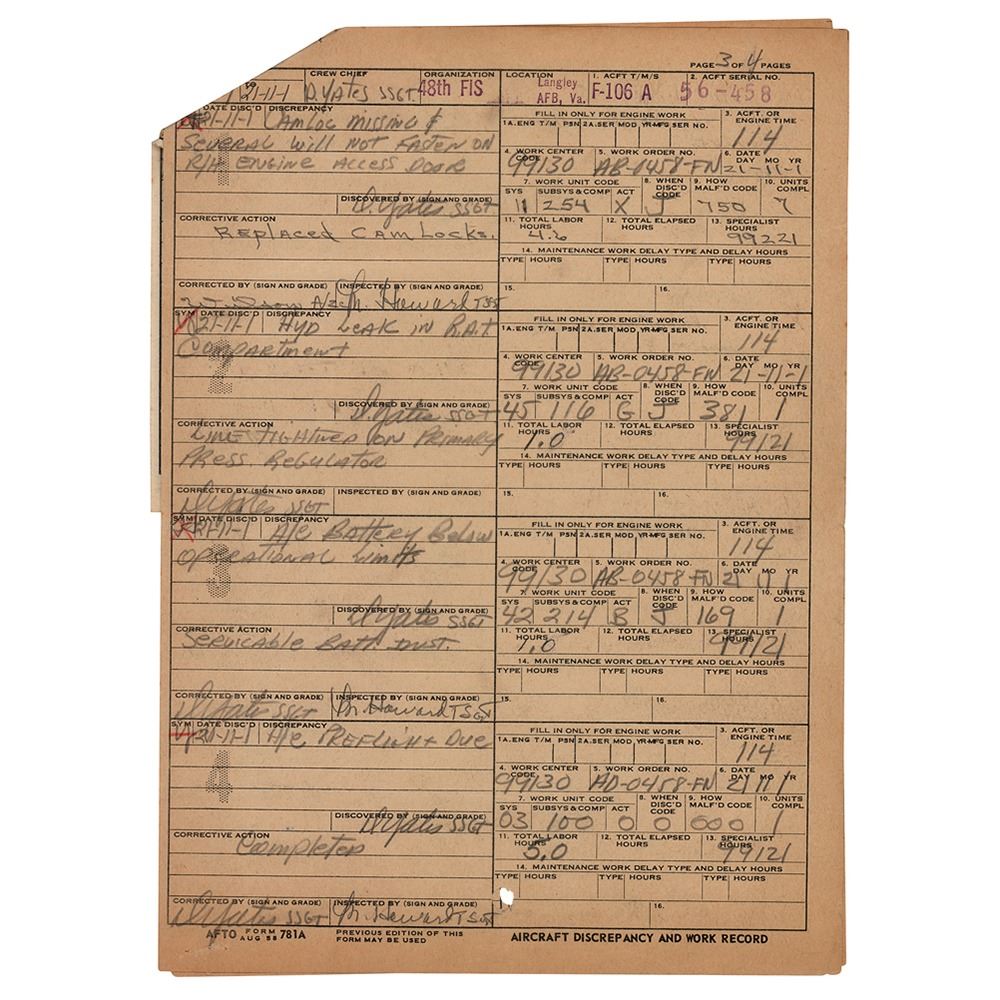 PAGE 3 OF 4 PAGES
CREW CHIEF ORGANIZATION LOCATION 1. ACFT T/M/S 2. ACFT SERIAL NO.
21-11-1 D. YATES SSGT. 48th FIS Langley AFB, Va. F-106 A 56-458
DATE DISC'D DISCREPANCY FILL IN ONLY FOR ENGINE WORK 3. ACFT. OR ENGINE TIME
21-11-1 CAMLOC MISSING & 1A. ENG T/M PSN 2A. SER MOD YR-MFG SER NO. 114
SEVERAL WILL NOT FASTEN ON 4. WORK CENTER CODE 5. WORK ORDER NO. 6. DATE DAY MO YR
R/H ENGINE ACCESS DOOR 99130 AB-0458-FN 21-11-1
1
7. WORK UNIT CODE 8. WHEN DISC'D CODE 9. HOW MALF'D CODE 10. UNITS COMPL
SYS SUBSYS & COMP ACT
DISCOVERED BY (SIGN AND GRADE) D. Yates SSGT 11 254 X J 750 7
CORRECTIVE ACTION 11. TOTAL LABOR HOURS 12. TOTAL ELAPSED HOURS 13. SPECIALIST
Replaced Cam Locks. 4.6 99221
14. MAINTENANCE WORK DELAY TYPE AND DELAY HOURS
TYPE HOURS TYPE HOURS TYPE HOURS
CORRECTED BY (SIGN AND GRADE) INSPECTED BY (SIGN AND GRADE) 15. 16.
A/2C M. Howard TSGT
SYM DATE DISC'D DISCREPANCY FILL IN ONLY FOR ENGINE WORK 3. ACFT. OR ENGINE TIME
21-11-1 HYD LEAK IN R.A.T. 1A. ENG T/M PSN 2A. SER MOD YR-MFG SER NO. 114
COMPARTMENT 4. WORK CENTER CODE 5. WORK ORDER NO. 6. DATE DAY MO YR
2 99130 AB-0458-FN 21-11-1
7. WORK UNIT CODE 8. WHEN DISC'D CODE 9. HOW MALF'D CODE 10. UNITS COMPL
SYS SUBSYS & COMP ACT
DISCOVERED BY (SIGN AND GRADE) D. Yates SSGT 45 116 G J 381 1
CORRECTIVE ACTION 11. TOTAL LABOR HOURS 12. TOTAL ELAPSED HOURS 13. SPECIALIST
LINE TIGHTNED ON PRIMARY 1.0 99121
PRESS. REGULATOR 14. MAINTENANCE WORK DELAY TYPE AND DELAY HOURS
TYPE HOURS TYPE HOURS TYPE HOURS
CORRECTED BY (SIGN AND GRADE) INSPECTED BY (SIGN AND GRADE) 15. 16.
D. Yates SSGT
SYM DATE DISC'D DISCREPANCY FILL IN ONLY FOR ENGINE WORK 3. ACFT. OR ENGINE TIME
21-11-1 A/C BATTERY BELOW 1A. ENG T/M PSN 2A. SER MOD YR-MFG SER NO. 114
OPERATIONAL LIMITS 4. WORK CENTER CODE 5. WORK ORDER NO. 6. DATE DAY MO YR
3 99130 AB-0458-FN 21 11 1
7. WORK UNIT CODE 8. WHEN DISC'D CODE 9. HOW MALF'D CODE 10. UNITS COMPL
SYS SUBSYS & COMP ACT
DISCOVERED BY (SIGN AND GRADE) D. Yates SSGT 42 214 B J 169 1
CORRECTIVE ACTION 11. TOTAL LABOR HOURS 12. TOTAL ELAPSED HOURS 13. SPECIALIST
SERVICABLE BATT INST. 1.0 99121
14. MAINTENANCE WORK DELAY TYPE AND DELAY HOURS
TYPE HOURS TYPE HOURS TYPE HOURS
CORRECTED BY (SIGN AND GRADE) INSPECTED BY (SIGN AND GRADE) 15. 16.
D. Yates SSGT M. Howard TSGT
SYM DATE DISC'D DISCREPANCY FILL IN ONLY FOR ENGINE WORK 3. ACFT. OR ENGINE TIME
21-11-1 A/C PREFLIGHT DUE 1A. ENG T/M PSN 2A. SER MOD YR-MFG SER NO. 114
4. WORK CENTER CODE 5. WORK ORDER NO. 6. DATE DAY MO YR
4 99130 AD-0458-FN 21 11 1
7. WORK UNIT CODE 8. WHEN DISC'D CODE 9. HOW MALF'D CODE 10. UNITS COMPL
SYS SUBSYS & COMP ACT
DISCOVERED BY (SIGN AND GRADE) D. Yates SSGT 03 100 0 0 000 1
CORRECTIVE ACTION 11. TOTAL LABOR HOURS 12. TOTAL ELAPSED HOURS 13. SPECIALIST
Completed 5.0 99121
14. MAINTENANCE WORK DELAY TYPE AND DELAY HOURS
TYPE HOURS TYPE HOURS TYPE HOURS
CORRECTED BY (SIGN AND GRADE) INSPECTED BY (SIGN AND GRADE) 16.
D. Yates SSGT M. Howard TSGT
AFTO FORM AUG 58 781A PREVIOUS EDITION OF THIS FORM MAY BE USED AIRCRAFT DISCREPANCY AND WORK RECORD